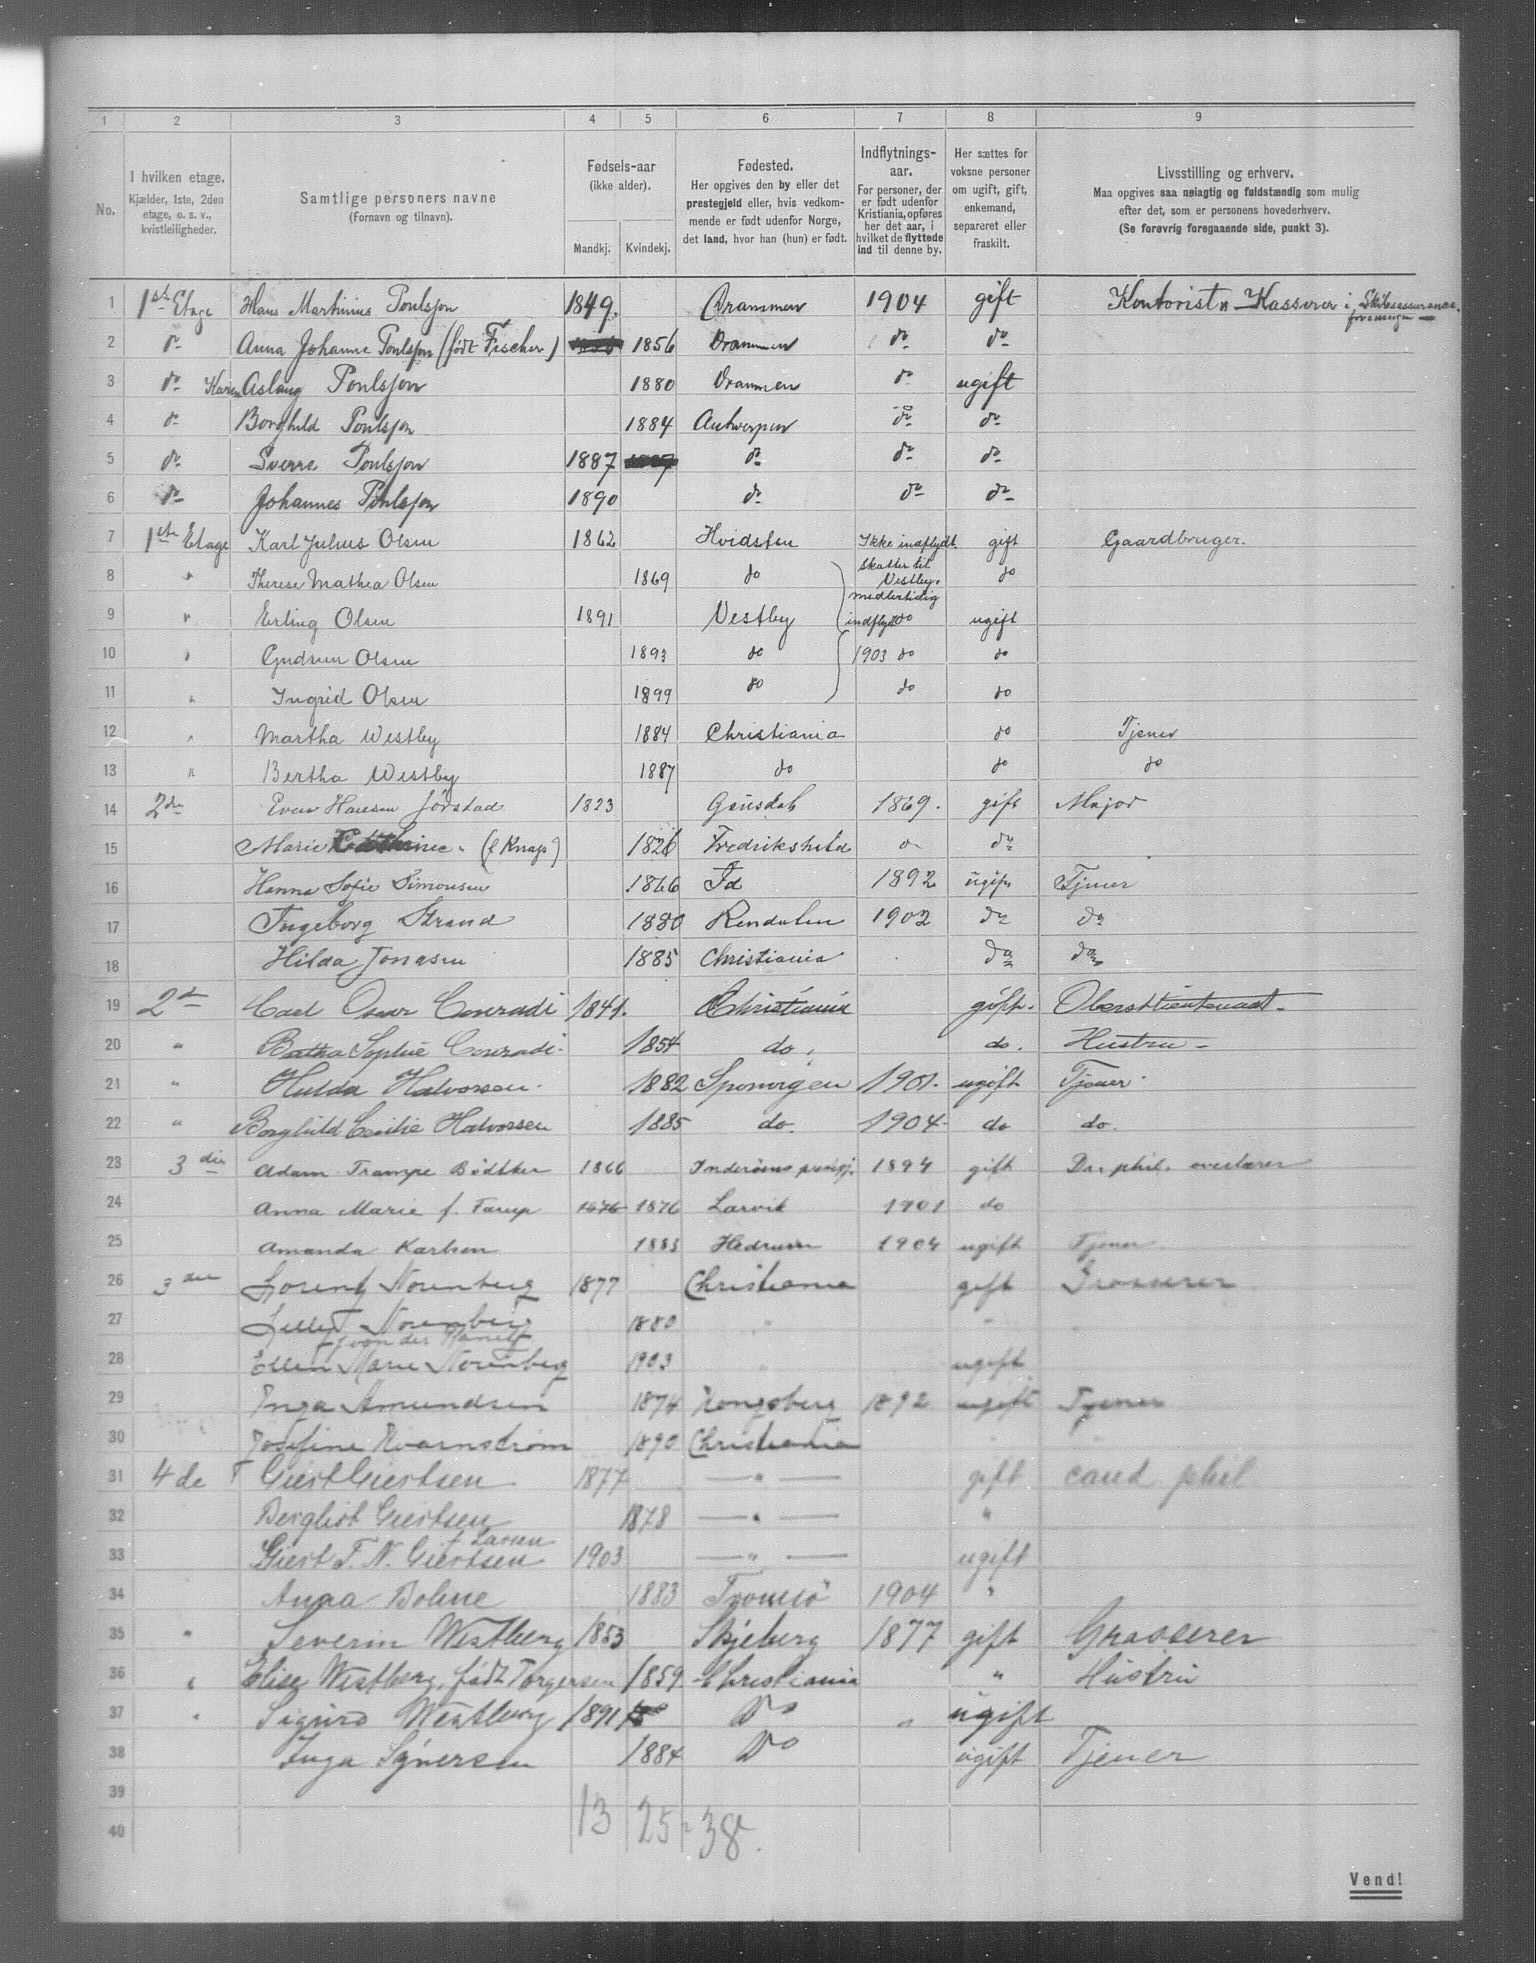 1 2 3 4 5 6 7 8 9
No.
I hvilken etage.
Kjælder, 1ste, 2den
etage, o. s. v.,
kvistleiligheder.
Samtlige personers navne
(Fornavn og tilnavn).
Fødsels-aar
(ikke alder).
Mandkj. Kvindekj.
Fødested.
Her opgives den by eller det
prestegjeld eller, hvis vedkom-
mende er født udenfor Norge,
det land, hvor han (hun) er født.
Indflytnings-
aar.
For personer, der
er født udenfor
Kristiania, opføres
her det aar, i
hvilket de flyttede
ind til denne by.
Her sættes for
voksne personer
om ugift, gift,
enkemand,
separeret eller
fraskilt.
Livsstilling og erhverv.
Maa opgives saa nøiagtig og fuldstændig som mulig
efter det, som er personens hovederhverv.
(Se forøvrig foregaaende side, punkt 3).
1 1ste Etage Hans Martinius Poulsson 1849. Drammen 1904 gift Kontorist Kasserer i Skibsassurance-
foreninga
2 do Anna Johanne Poulsson (født Fischer) 1856 Drammen do do
3 do Karen Aslaug Poulsson 1880 Drammen do ugift
4 do Borghild Poulsson 1884 Antwerpen do do
5 do Sverre Poulsson 1887 do do do
6 do Johannes Poulsson 1890 do do do
7 1ste Etage Karl Julius Olsen 1862 Hvidsten Ikke indflydt. gift Gaardbruger.
skatter til
8 " Therese Mathea Olsen 1869 do Vestby. do
medlertidig
9 " Erling Olsen 1891 Vestby indflydt do ugift
10 " Gudrun Olsen 1893 do 1903 do do
11 " Ingrid Olsen 1899 do do do
12 " Martha Westby 1884 Christiania do Tjener
13 " Bertha Westby 1887 do do do
14 2den Even Hansen Jørstad 1823 Gausdal 1869. gift Major
15 Marie Cathrine (f Knap) 1826 Fredrikshald " do
16 Hanna Sofie Simonsen 1866 Id 1892 ugift Tjener
17 Ingeborg Strand 1880 Rendalen 1902 do do
18 Hilda Jonasen 1885 Christiania do do
19 2den Carl Oscar Conradi 1841. Christiania gift. Oberstlieutenant.
20 " Bertha Sophie Conradi. 1854 do. do. Hustru -
21 " Hulda Halvorsen. 1882 Sponvigen 1901. ugift Tjener.
22 " Borghild Cecilie Halvorsen 1885 do. 1904. do do.
23 3die Adam Trampe Bödtker 1866 Inderøens prestgj. 1894 gift Dr. phil. overlærer
24 Anna Marie f. Farup 1876 1876 Larvik 1901 do
25 Amanda Karlsen 1883 Hedrum 1904 ugift Tjener
26 3die Lorentz Norenberg 1877 Christiania gift Grosserer
27 Lilly T Norenberg 1880 " "
f. von der
28 Ellen Marie Norenberg 1903 " ugift
29 Inga Amundsen 1874 Kongsberg 1892 ugift Tjener
30 Josefine Kvarnstrøm 1890 Christiania " "
31 4de Giert Giertsen 1877 — " — gift cand phil
32 Bergliot Giertsen 1878 — " — "
f. Larsen
33 Giert T. N. Giertsen 1903 — " — ugift
34 Anna Bohne 1883 Tromsö 1904 "
35 " Severin Westberg 1853 Skjeberg 1877 gift Grosserer
36 " Elise Westberg, født Torgersen 1859. Christiania " Hustru
37 " Sigurd Westberg 1891 Do " ugift
38 Inga Syversen 1884 Do ugift Tjener
39
40 13 25 = 38.
Vend!